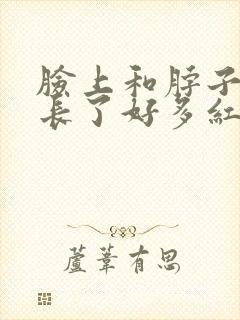 臉上和脖子
長了好多紅
蘆葦有思